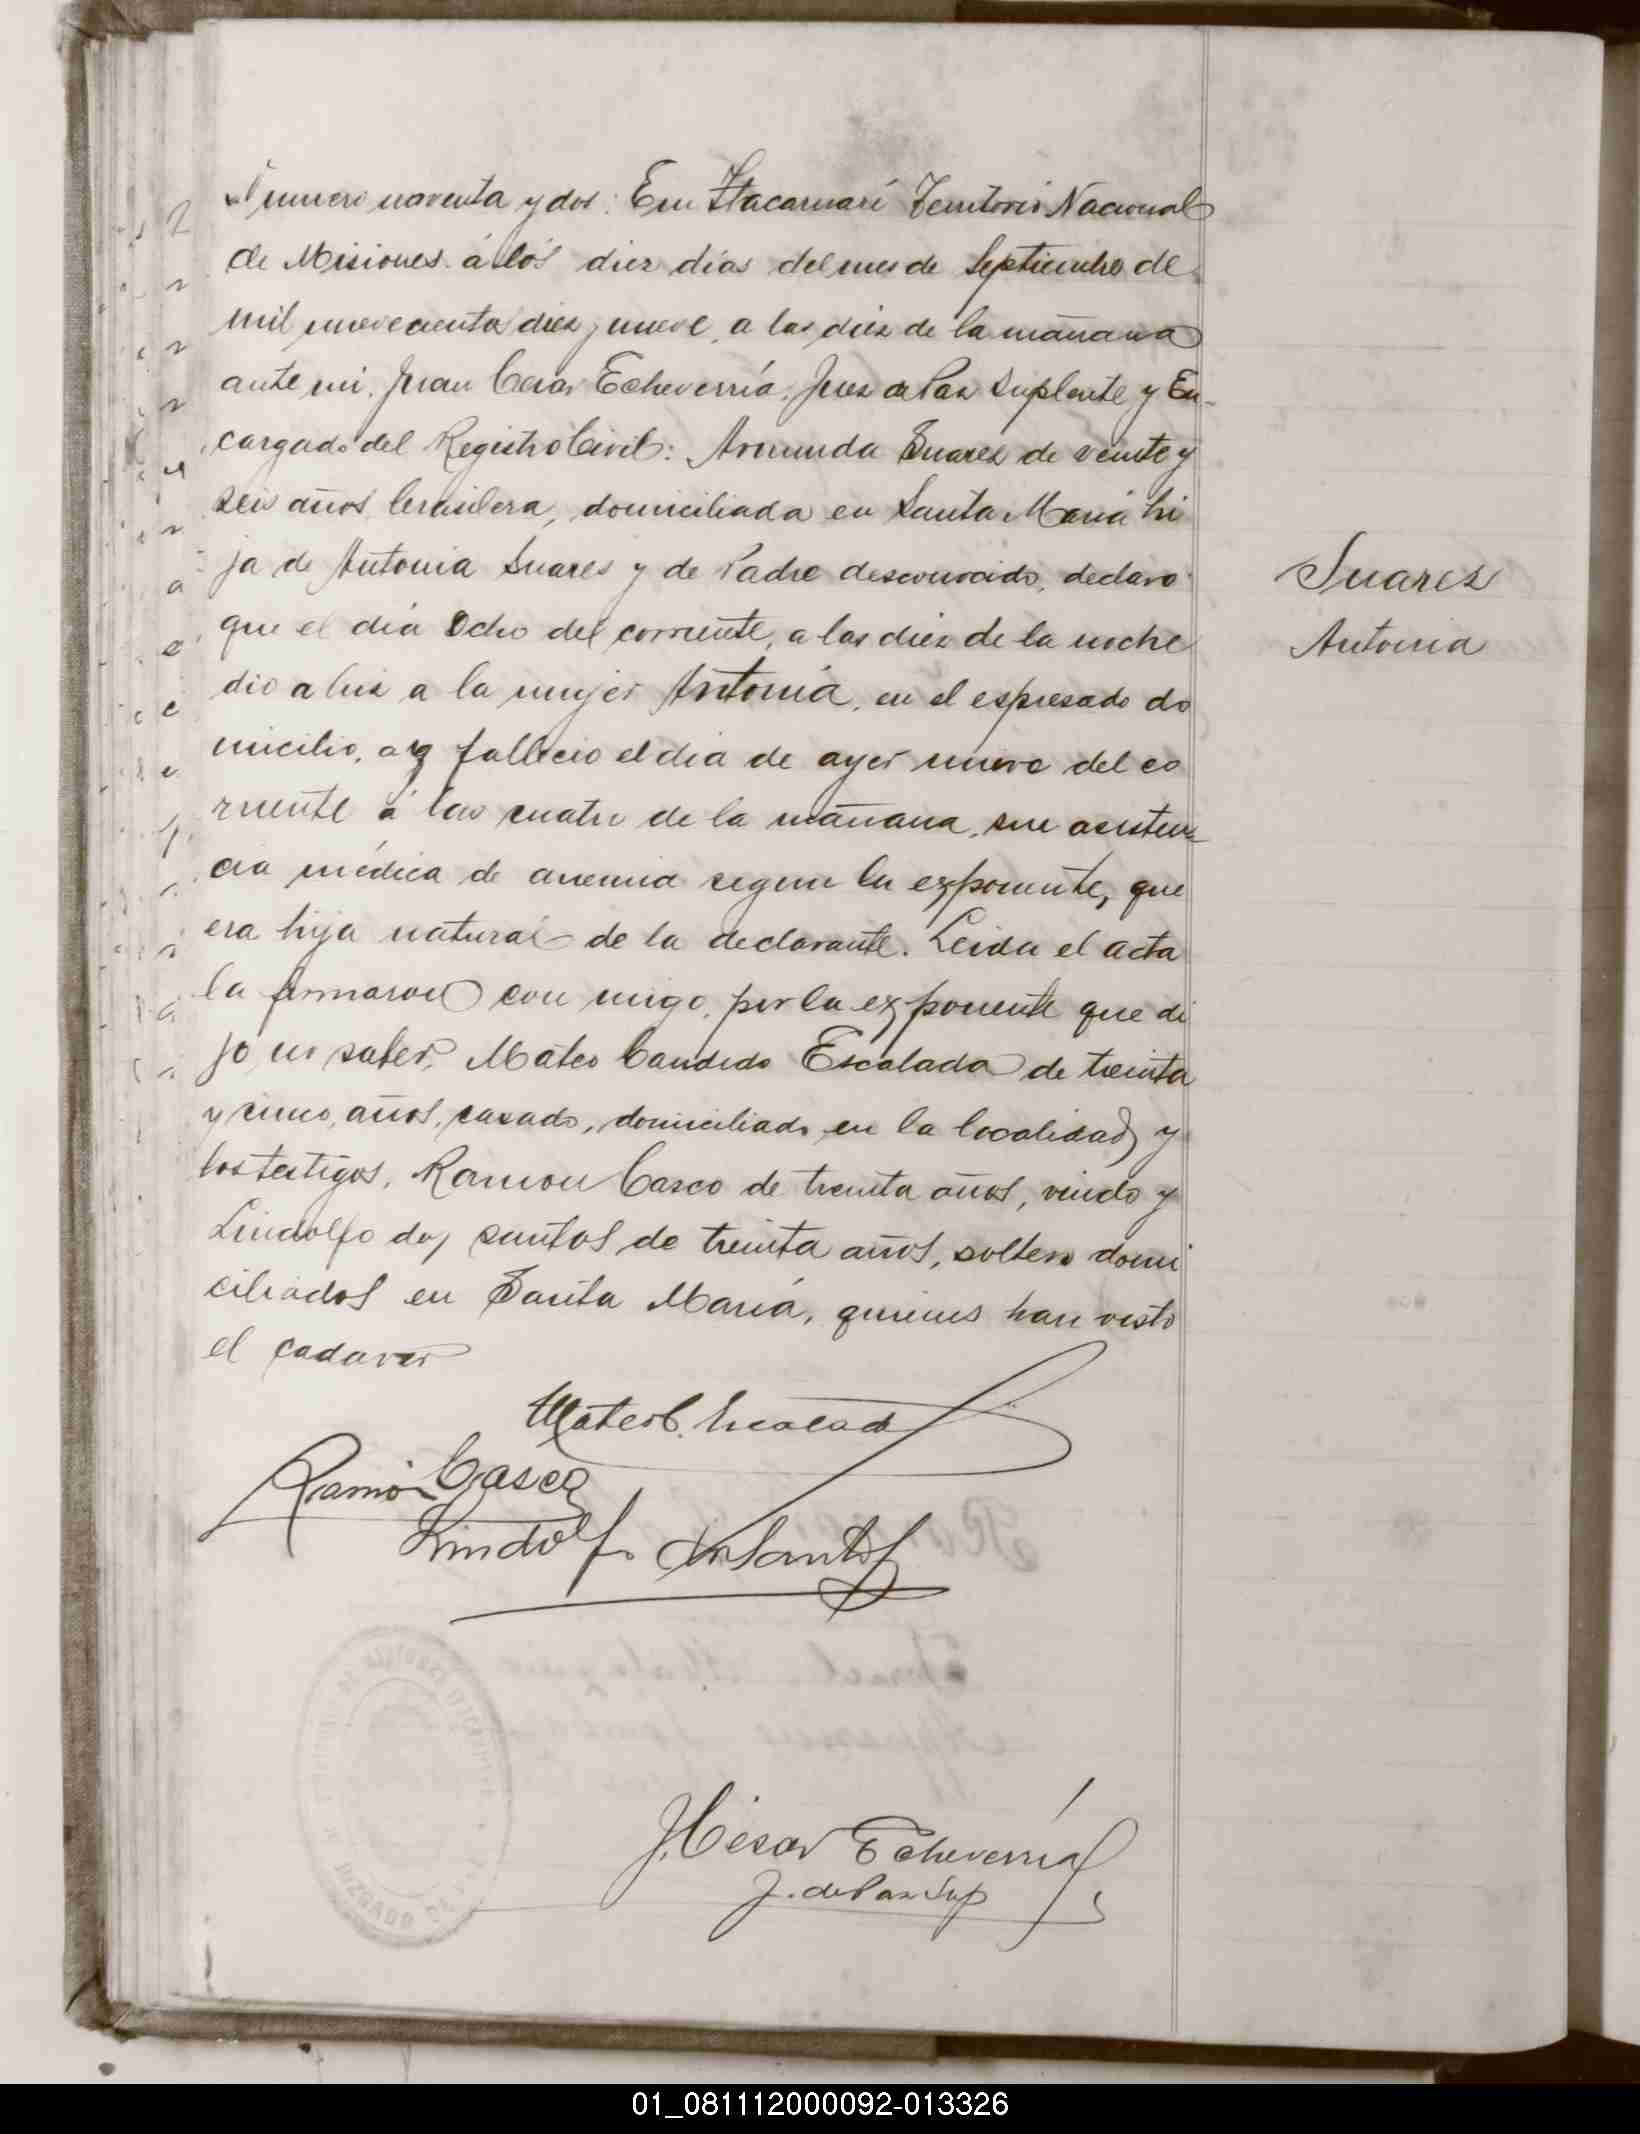 Numero noventa y dos: En Itacaruaré Territorio Nacional
de Misiones á los diez dias del mes de Septiembre de
mil novecientos diez y nueve, a las diez de la mañana
ante mi, Juan Cesar Echeverría, Juez de Paz Suplente y En-
cargado del Registro Civil: Armunda Suarez de veinte y
seis años, brasilera, domiciliada en Santa Maria hi
ja de Antonia Suares y de Padre desconocido, declaro
que el día Ocho del corriente, a las diez de la noche
dio a luz a la mujer Antonia, en el espresado do
micilio, fallecio el dia de ayer nueve del co
rriente á las cuatro de la mañana, sin asisten
cia médica de anemia segun la exponente, que
era hija natural de la declarante. Leida el acta
la firmaron con migo, por la exponente que di
jo no saber, Mateo Candido Escalada de treinta
y cinco, años, casado, domiciliado en la localidad y
los testigos, Ramon Casco de treinta años, viudo y
Lindolfo dos santos de treinta años, soltero domi
ciliados en Santa María, quienes han visto
el cadaver
Mateo C. Escalada
Ramón Casco
Lindolfo dos Santos
J. César Echeverría
J. de Paz Sup
Suarez
Antonia
JUZGADO DE
01_081112000092-013326